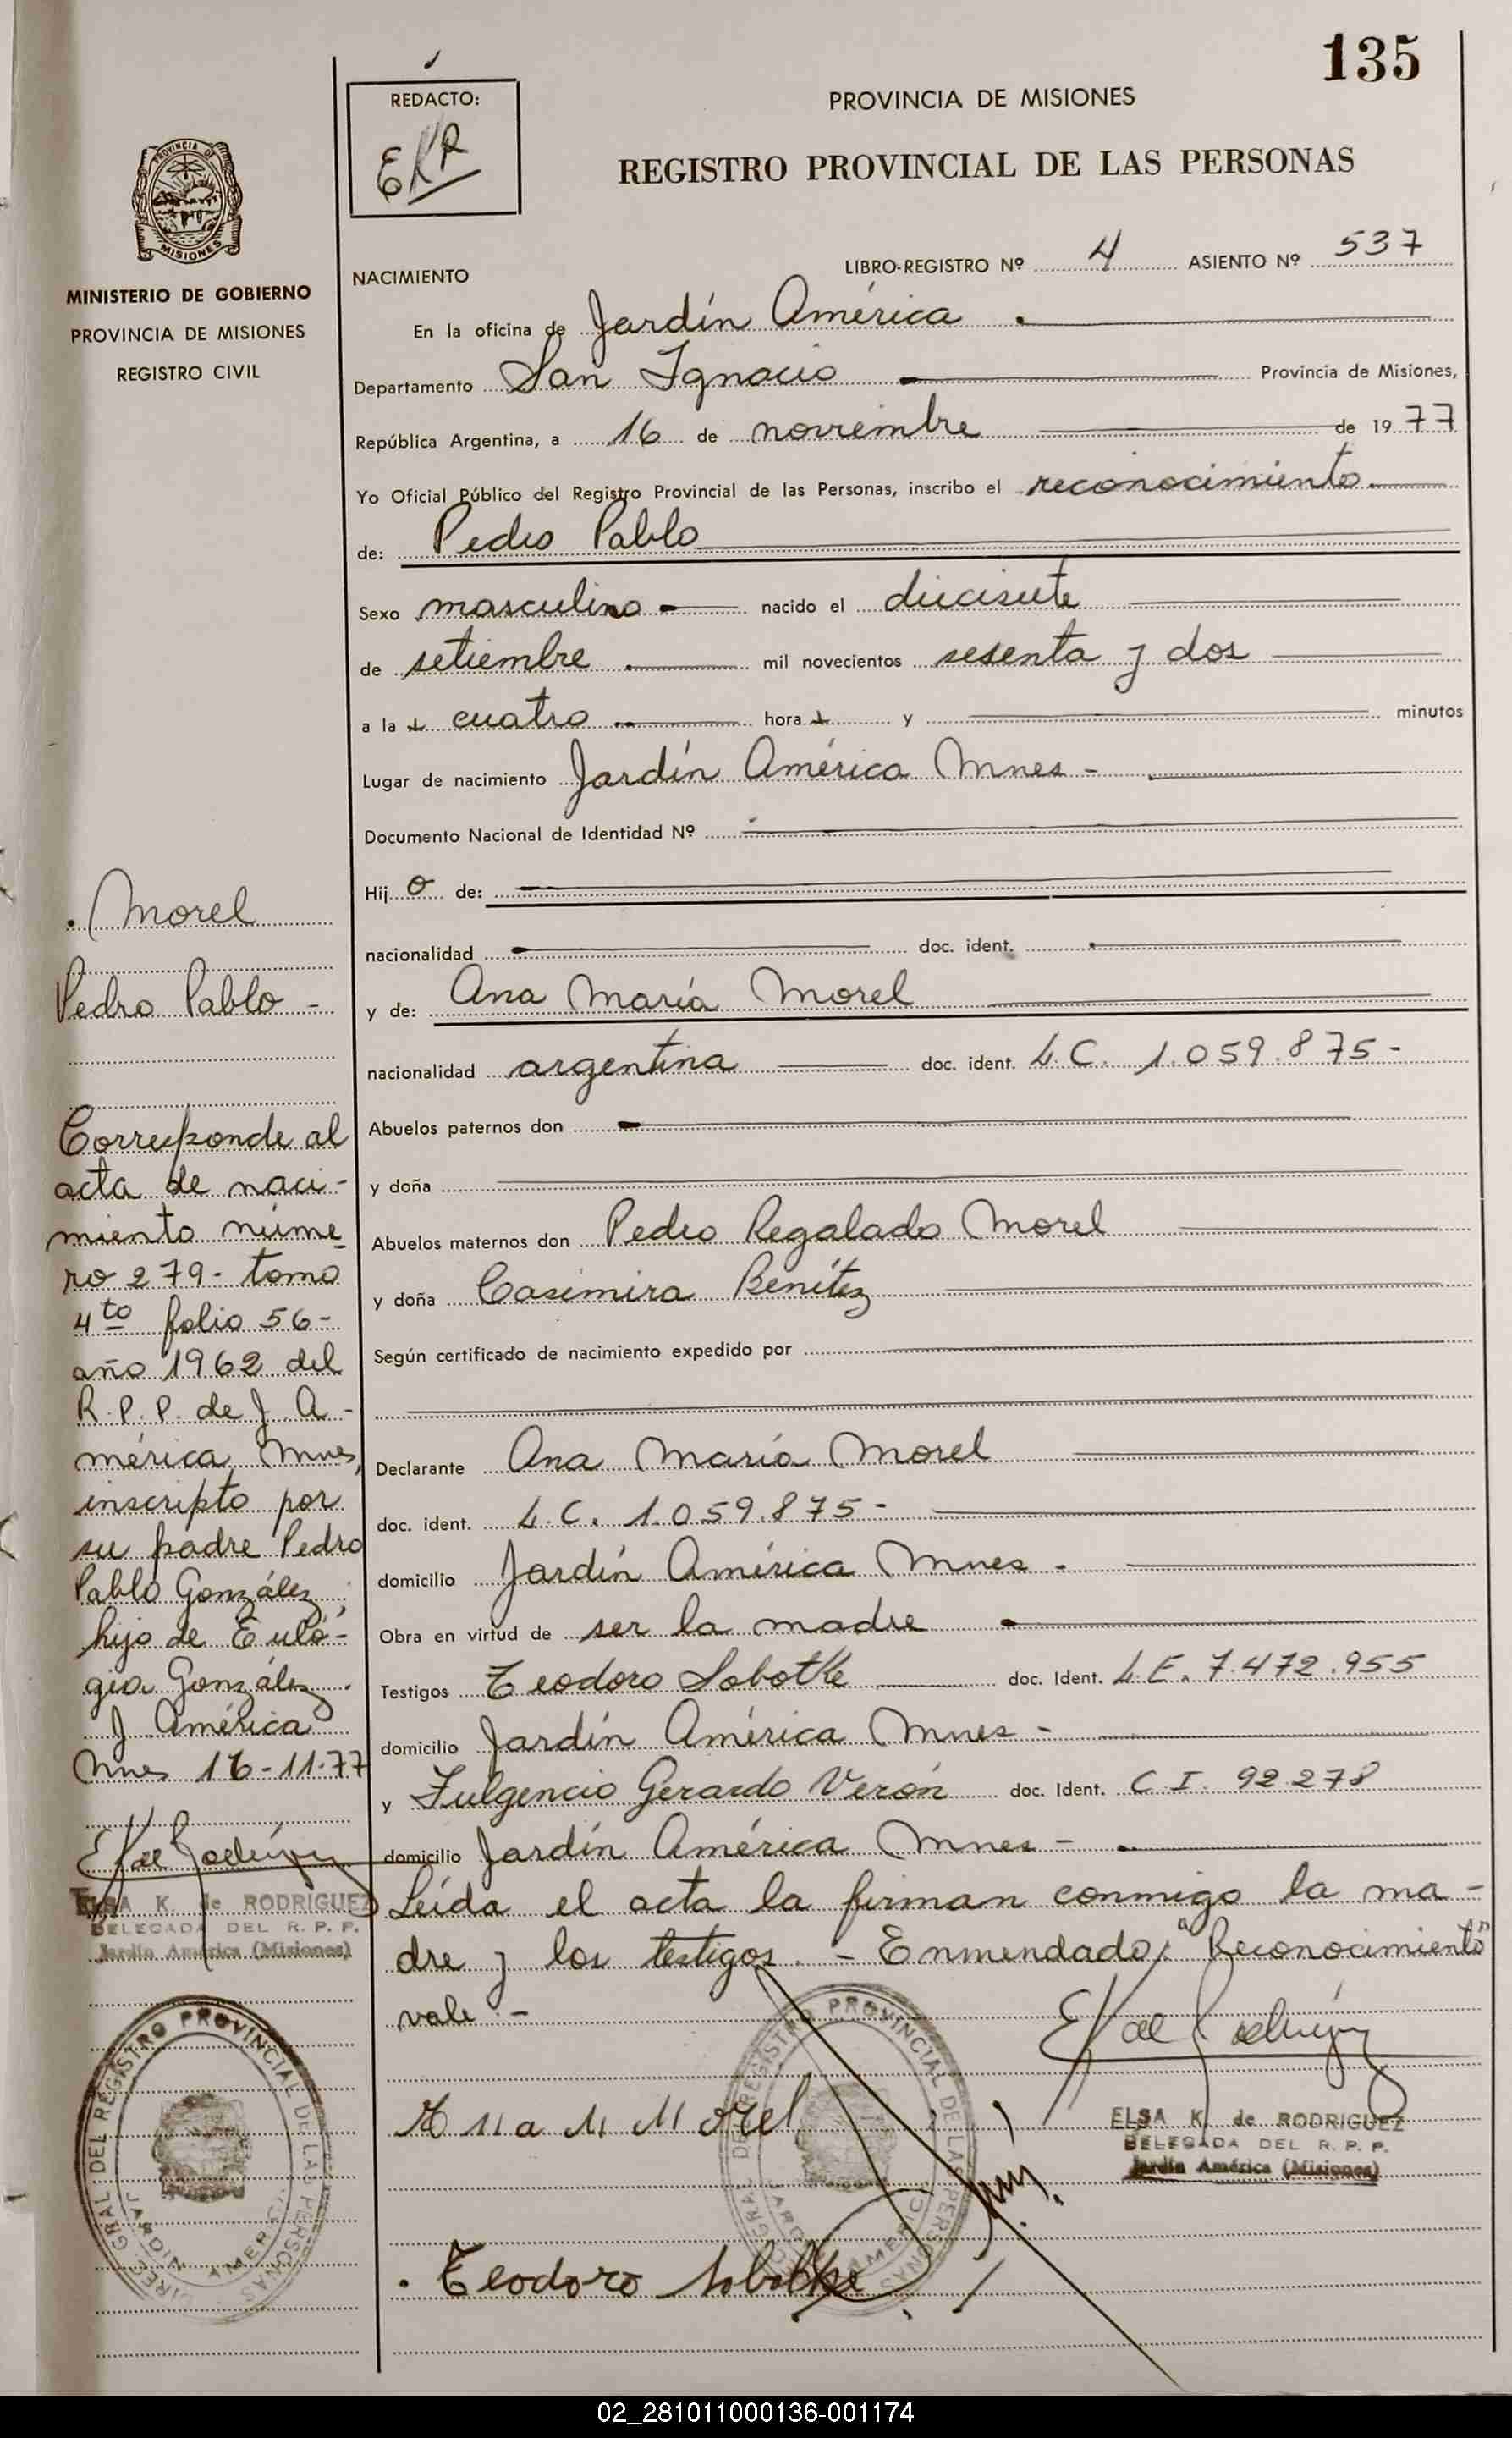 135
REDACTO:
PROVINCIA DE MISIONES
REGISTRO PROVINCIAL DE LAS PERSONAS
PROVINCIA DE
MISIONES
MINISTERIO DE GOBIERNO
PROVINCIA DE MISIONES
REGISTRO CIVIL
NACIMIENTO
LIBRO-REGISTRO Nº 4 ASIENTO Nº 537
En la oficina de Jardín América
Departamento San Ignacio Provincia de Misiones,
República Argentina, a 16 de noviembre de 1977
Yo Oficial Público del Registro Provincial de las Personas, inscribo el reconocimiento
de: Pedro Pablo
Sexo masculino nacido el diecisiete
de setiembre mil novecientos sesenta y dos
a la s cuatro hora s y minutos
Lugar de nacimiento Jardín América Mnes -
Documento Nacional de Identidad Nº
Hij o de:
nacionalidad doc. ident.
y de: Ana María Morel
nacionalidad argentina doc. ident. L.C. 1.059.875-
Abuelos paternos don
y doña
Abuelos maternos don Pedro Regalado Morel
y doña Casimira Benítez
Según certificado de nacimiento expedido por
Declarante Ana María Morel
doc. ident. L.C. 1.059.875-
domicilio Jardín América Mnes -
Obra en virtud de ser la madre
Testigos Teodoro Sobotke doc. Ident. L.E. 7.472.955
domicilio Jardín América Mnes -
y Fulgencio Gerardo Verón doc. Ident. C.I. 92.278
domicilio Jardín América Mnes -
Leída el acta la firman conmigo la ma-
dre y los testigos. - Enmendado: "Reconocimiento"
vale. -
Morel
Pedro Pablo -
Corresponde al
acta de naci-
miento núme-
ro 279- tomo
4to folio 56-
año 1962 del
R.P.P. de J. A-
mérica Mnes,
inscripto por
su padre Pedro
Pablo González;
hijo de Euló-
gia González.
J. América
Mnes 16-11-77
ELSA K. de RODRIGUEZ
DELEGADA DEL R. P. P.
Jardín América (Misiones)
DIREC. GRAL. DEL REGISTRO PROVINCIAL DE LAS PERSONAS
JARDIN AMERICA
Ana M Morel
DEL REGISTRO PROVINCIAL DE LAS PERSONAS
ELSA K. de RODRIGUEZ
DELEGADA DEL R. P. P.
Jardín América (Misiones)
Teodoro Sobotke
02_281011000136-001174